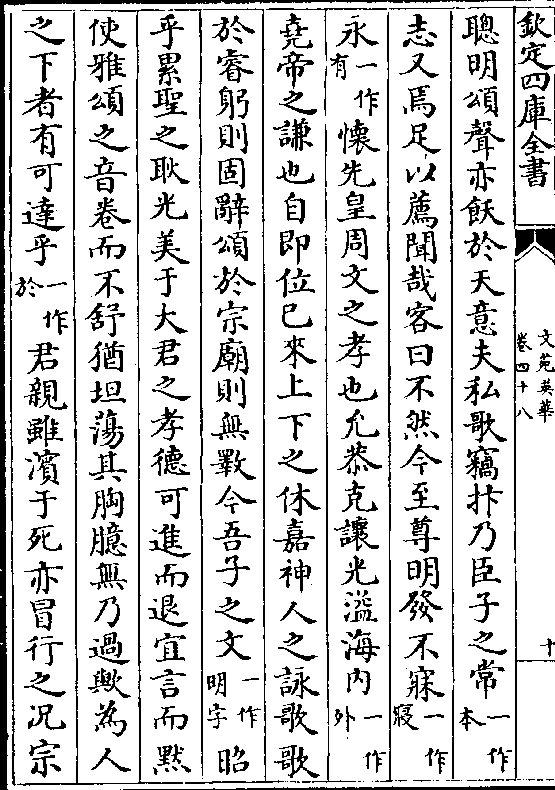 欽定四庫全書
文苑英華
卷四十八
十
聰明頌聲亦飫於天意夫私歌竊抃乃臣子之常一作本
志又焉足以薦聞哉客曰不然今至尊明發不寐一作寢
永一作有懷先皇周文之孝也允恭克讓光溢海内一作外
堯帝之謙也自即位已來上下之休嘉神人之詠歌歌
於睿躬則固辭頌於宗廟則無斁今吾子之文一作明字昭
乎累聖之耿光美于大君之孝德可進而退宜言而默
使雅頌之音卷而不舒猶坦蕩其胸臆無乃過歟為人
之下者有可達乎一作於君親雖濱于死亦冒行之況宗